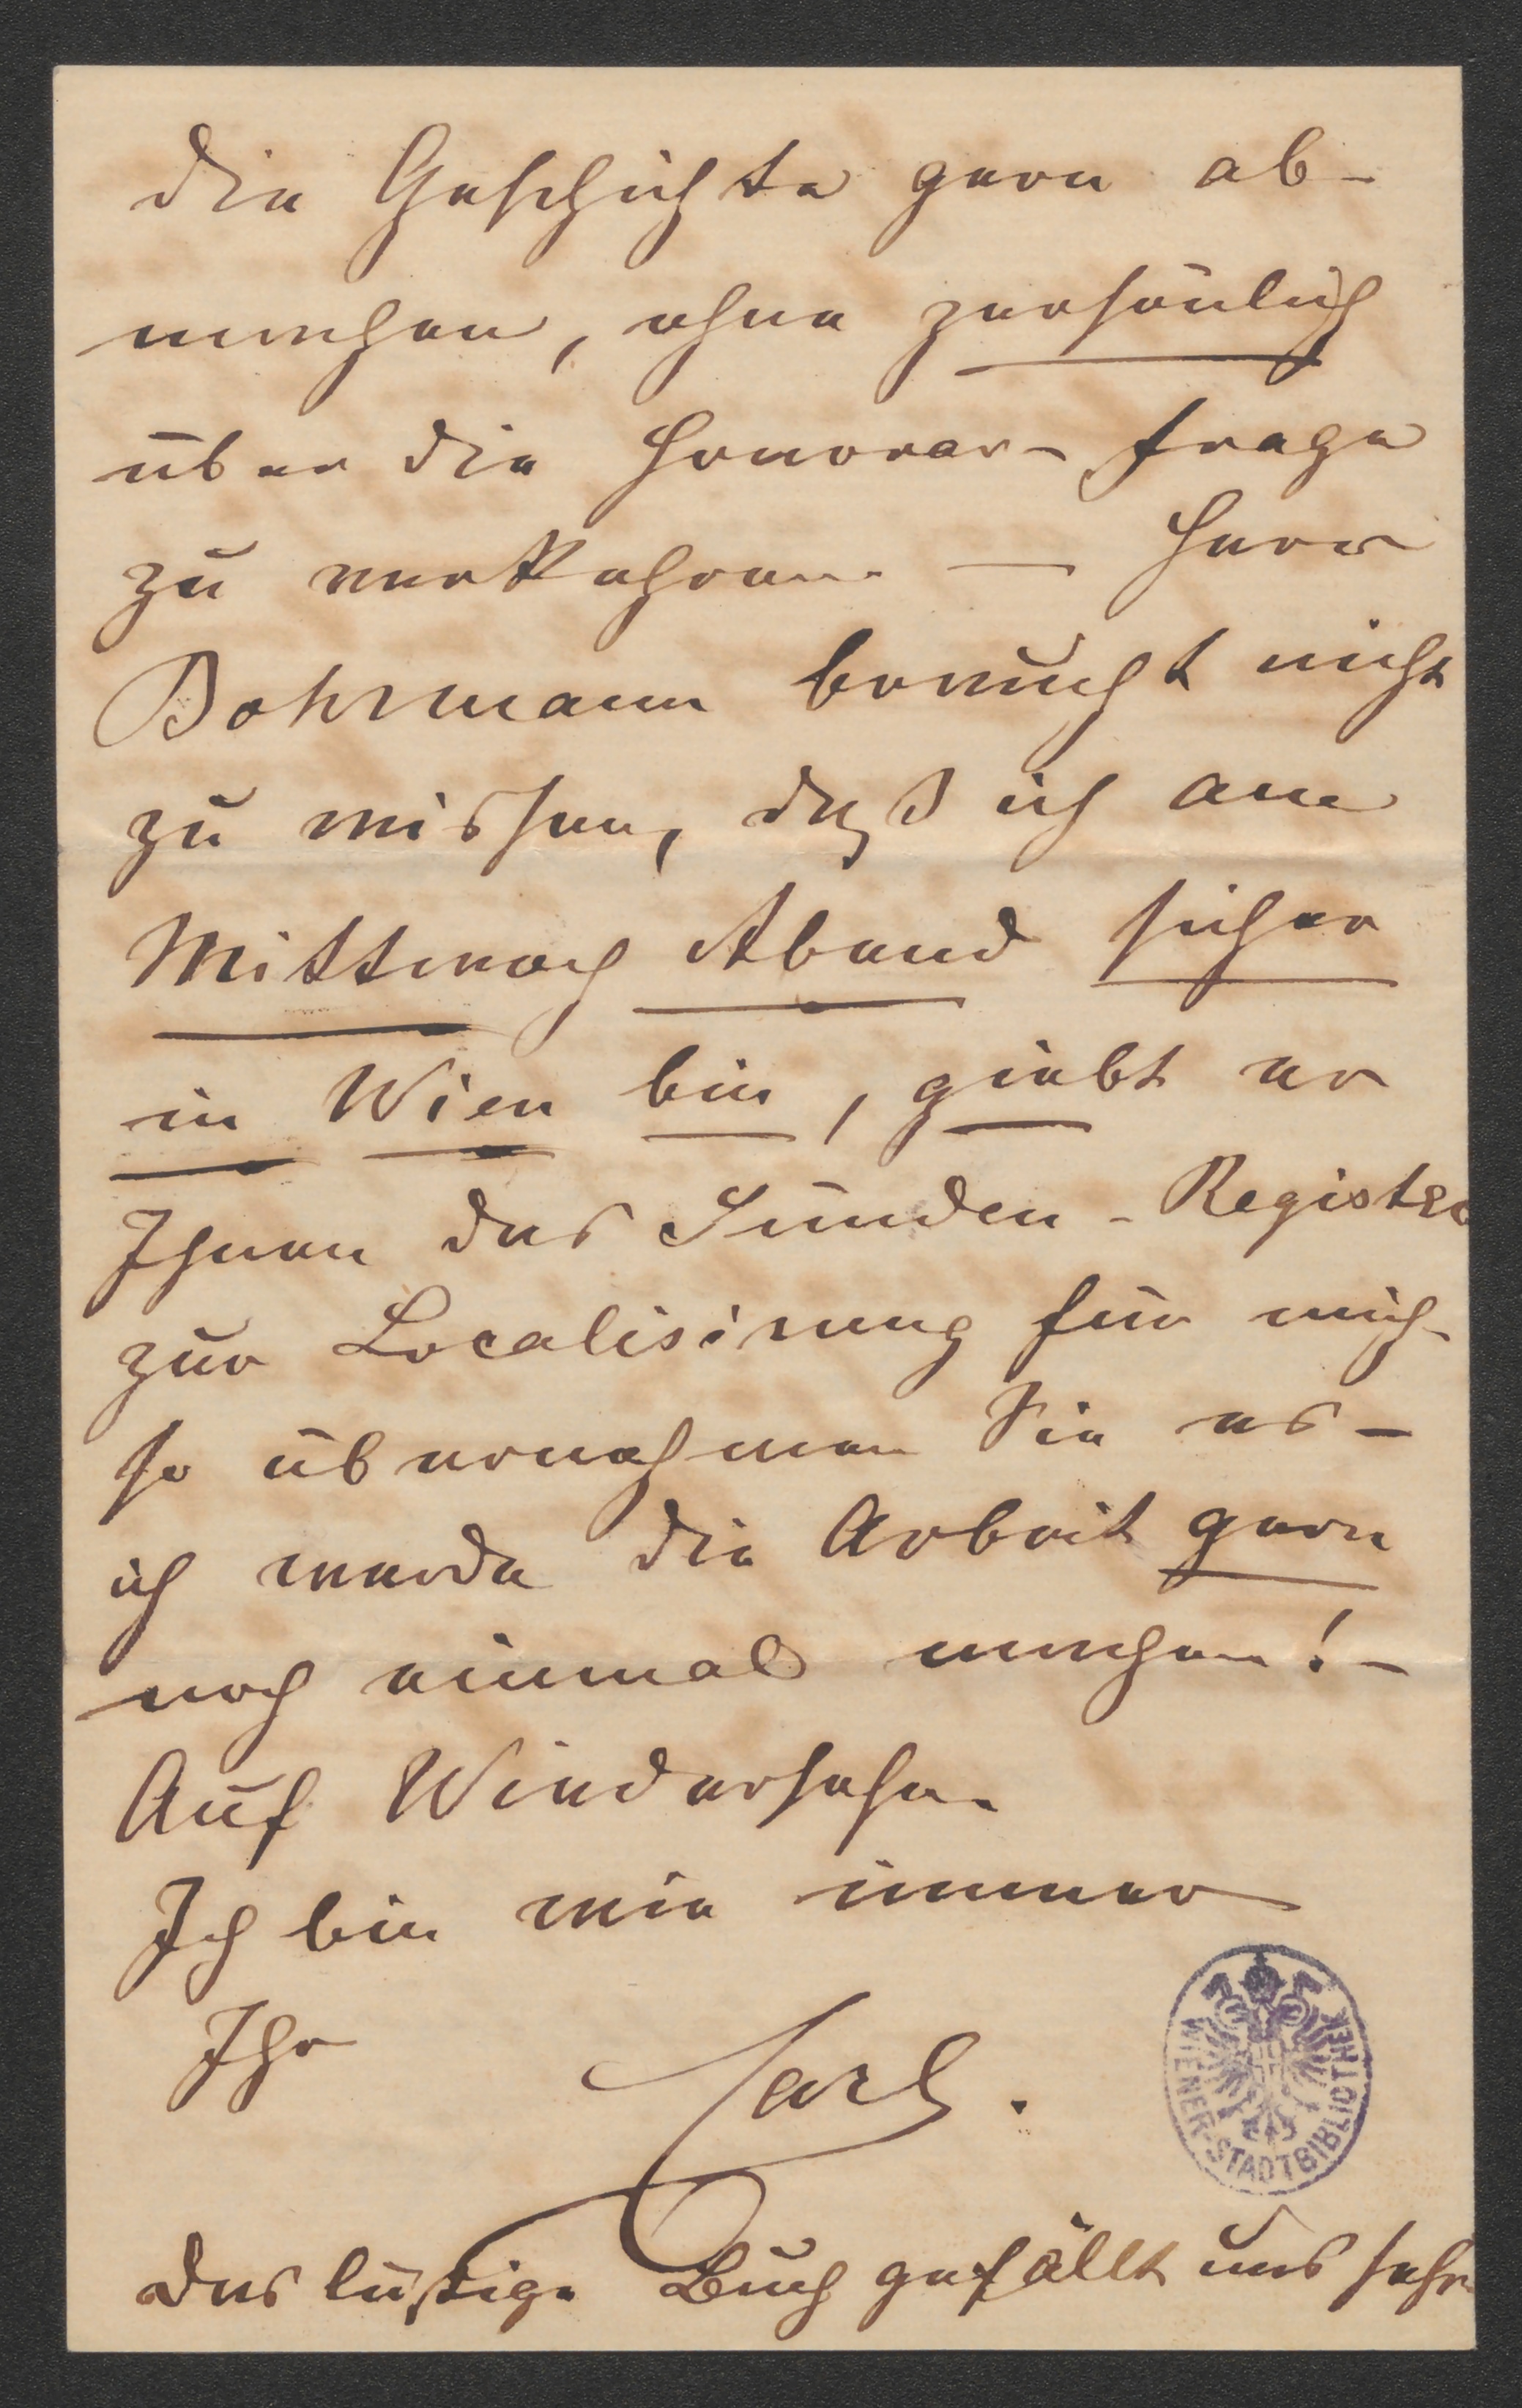 die Geschichte gern ab-
machen, ohne persönlich
über die Honorar-frage
zu verkehren. — Herr
Bohrmann braucht nicht
zu wissen, daß ich am
Mittwoch Abend sicher
in Wien bin, giebt er
Ihnen das Sünden-Register
zur Localisirung für mich-
so übernehmen Sie es-
ich werde die Arbeit gern
noch einmal machen! -
Auf Wiedersehen.
Ich bin wie immer
Ihr Carl.
WIENER-STADTBIBLIOTHEK
das lustige Buch gefällt uns sehr